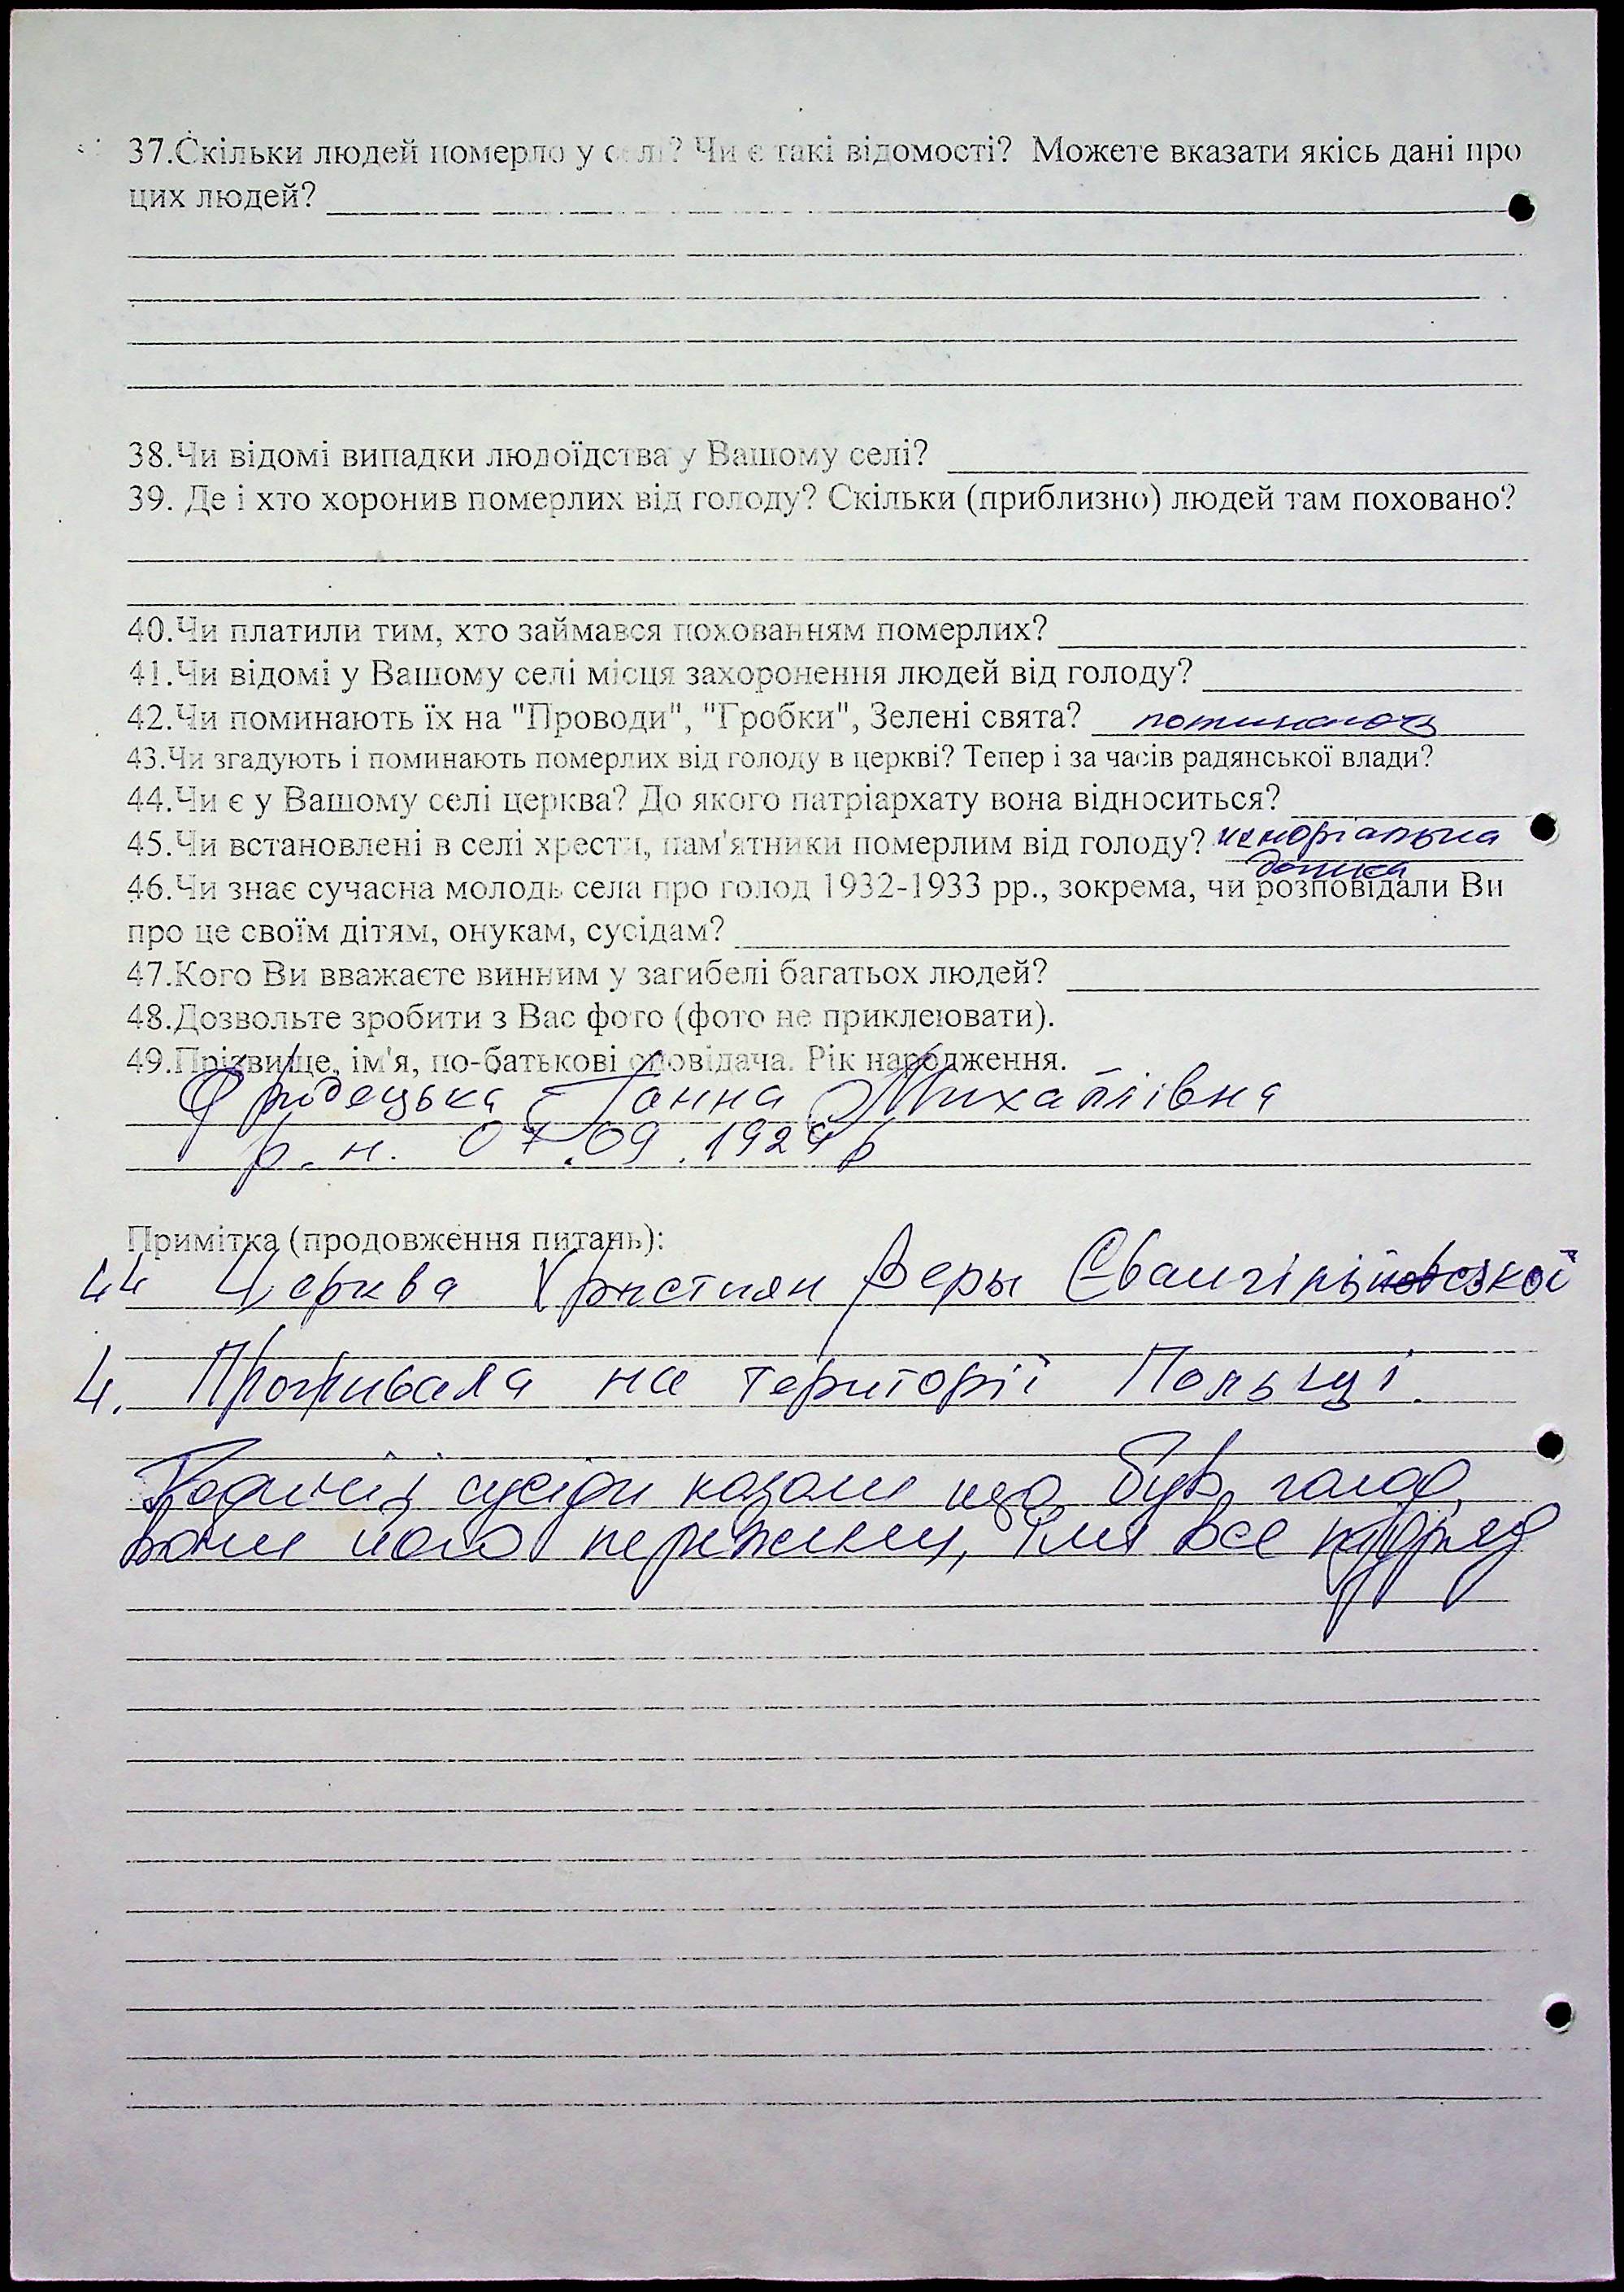 37.Скільки людей померло у селі? Чи є такі відомості? Можете вказати якісь дані про
цих людей?
38.Чи відомі випадки людоїдства у Вашому селі?
39. Де і хто хоронив померлих від голоду? Скільки (приблизно) людей там поховано?
40.Чи платили тим, хто займався похованням померлих?
41.Чи відомі у Вашому селі місця захоронення людей від голоду?
42.Чи поминають їх на "Проводи", "Гробки", Зелені свята? поминають
43.Чи згадують і поминають померлих від голоду в церкві? Тепер і за часів радянської влади?
44.Чи є у Вашому селі церква? До якого патріархату вона відноситься?
45.Чи встановлені в селі хрести, пам'ятники померлим від голоду? меморіальна
дошка
46.Чи знає сучасна молодь села про голод 1932-1933 рр., зокрема, чи розповідали Ви
про це своїм дітям, онукам, сусідам?
47.Кого Ви вважаєте винним у загибелі багатьох людей?
48.Дозвольте зробити з Вас фото (фото не приклеювати).
49.Прізвище, ім'я, по-батькові оповідача. Рік народження.
Ганна Михайлівна
р.н. 07.09.1929р
Примітка (продовження питань):
44 Церква Християн Веры
4. Проживала на території Польщі.
сусіди казали що був голод,
вони його пережили, їли все підряд